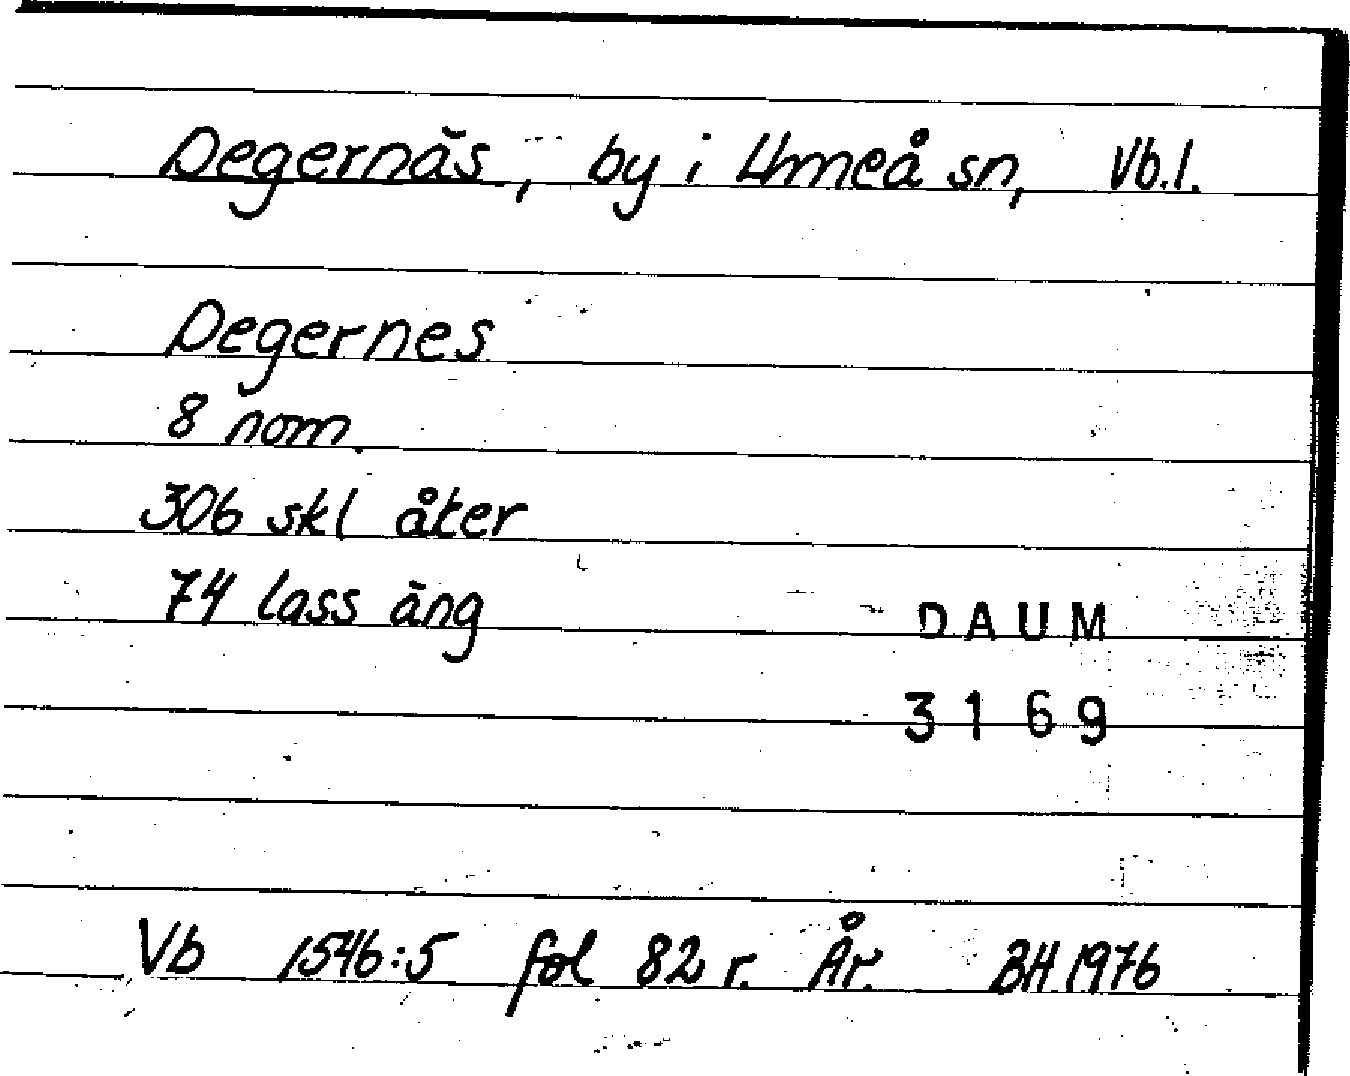 Degernäs, by i Umeå sn, Vb.l.
Degernes
8 nom.
306 skl åker
74 lass äng
DAUM
3169
Vb 1546:5 fol 82 r. År. BH 1976